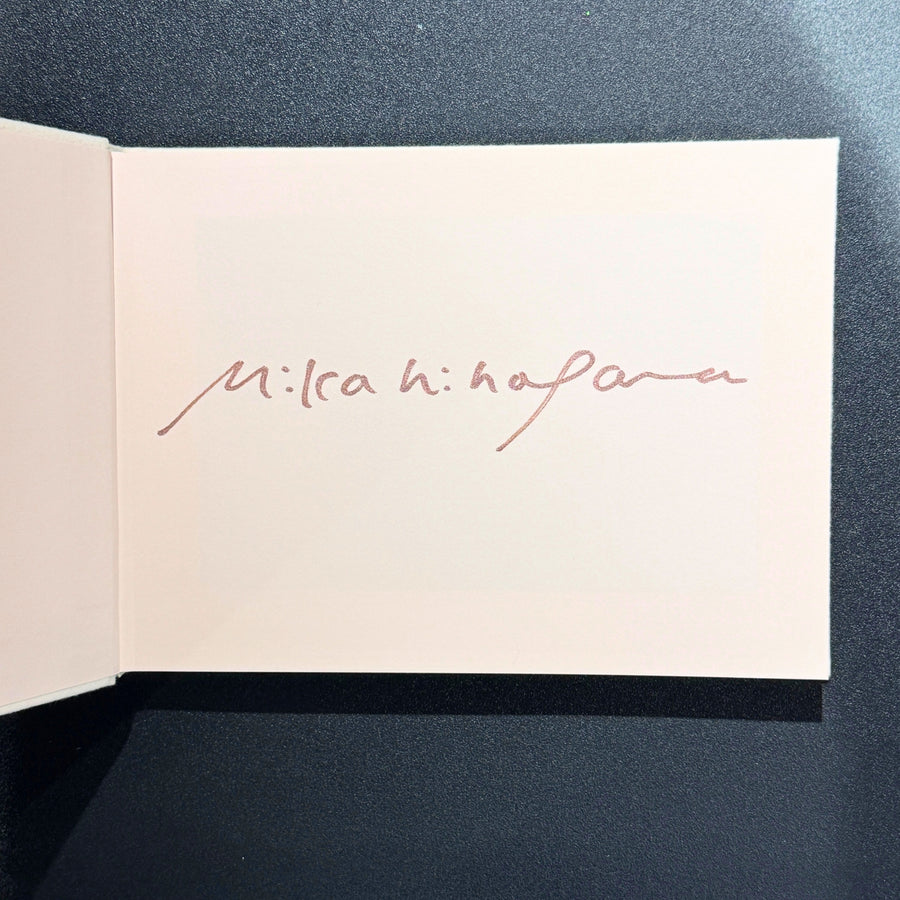 Mika Ninagawa